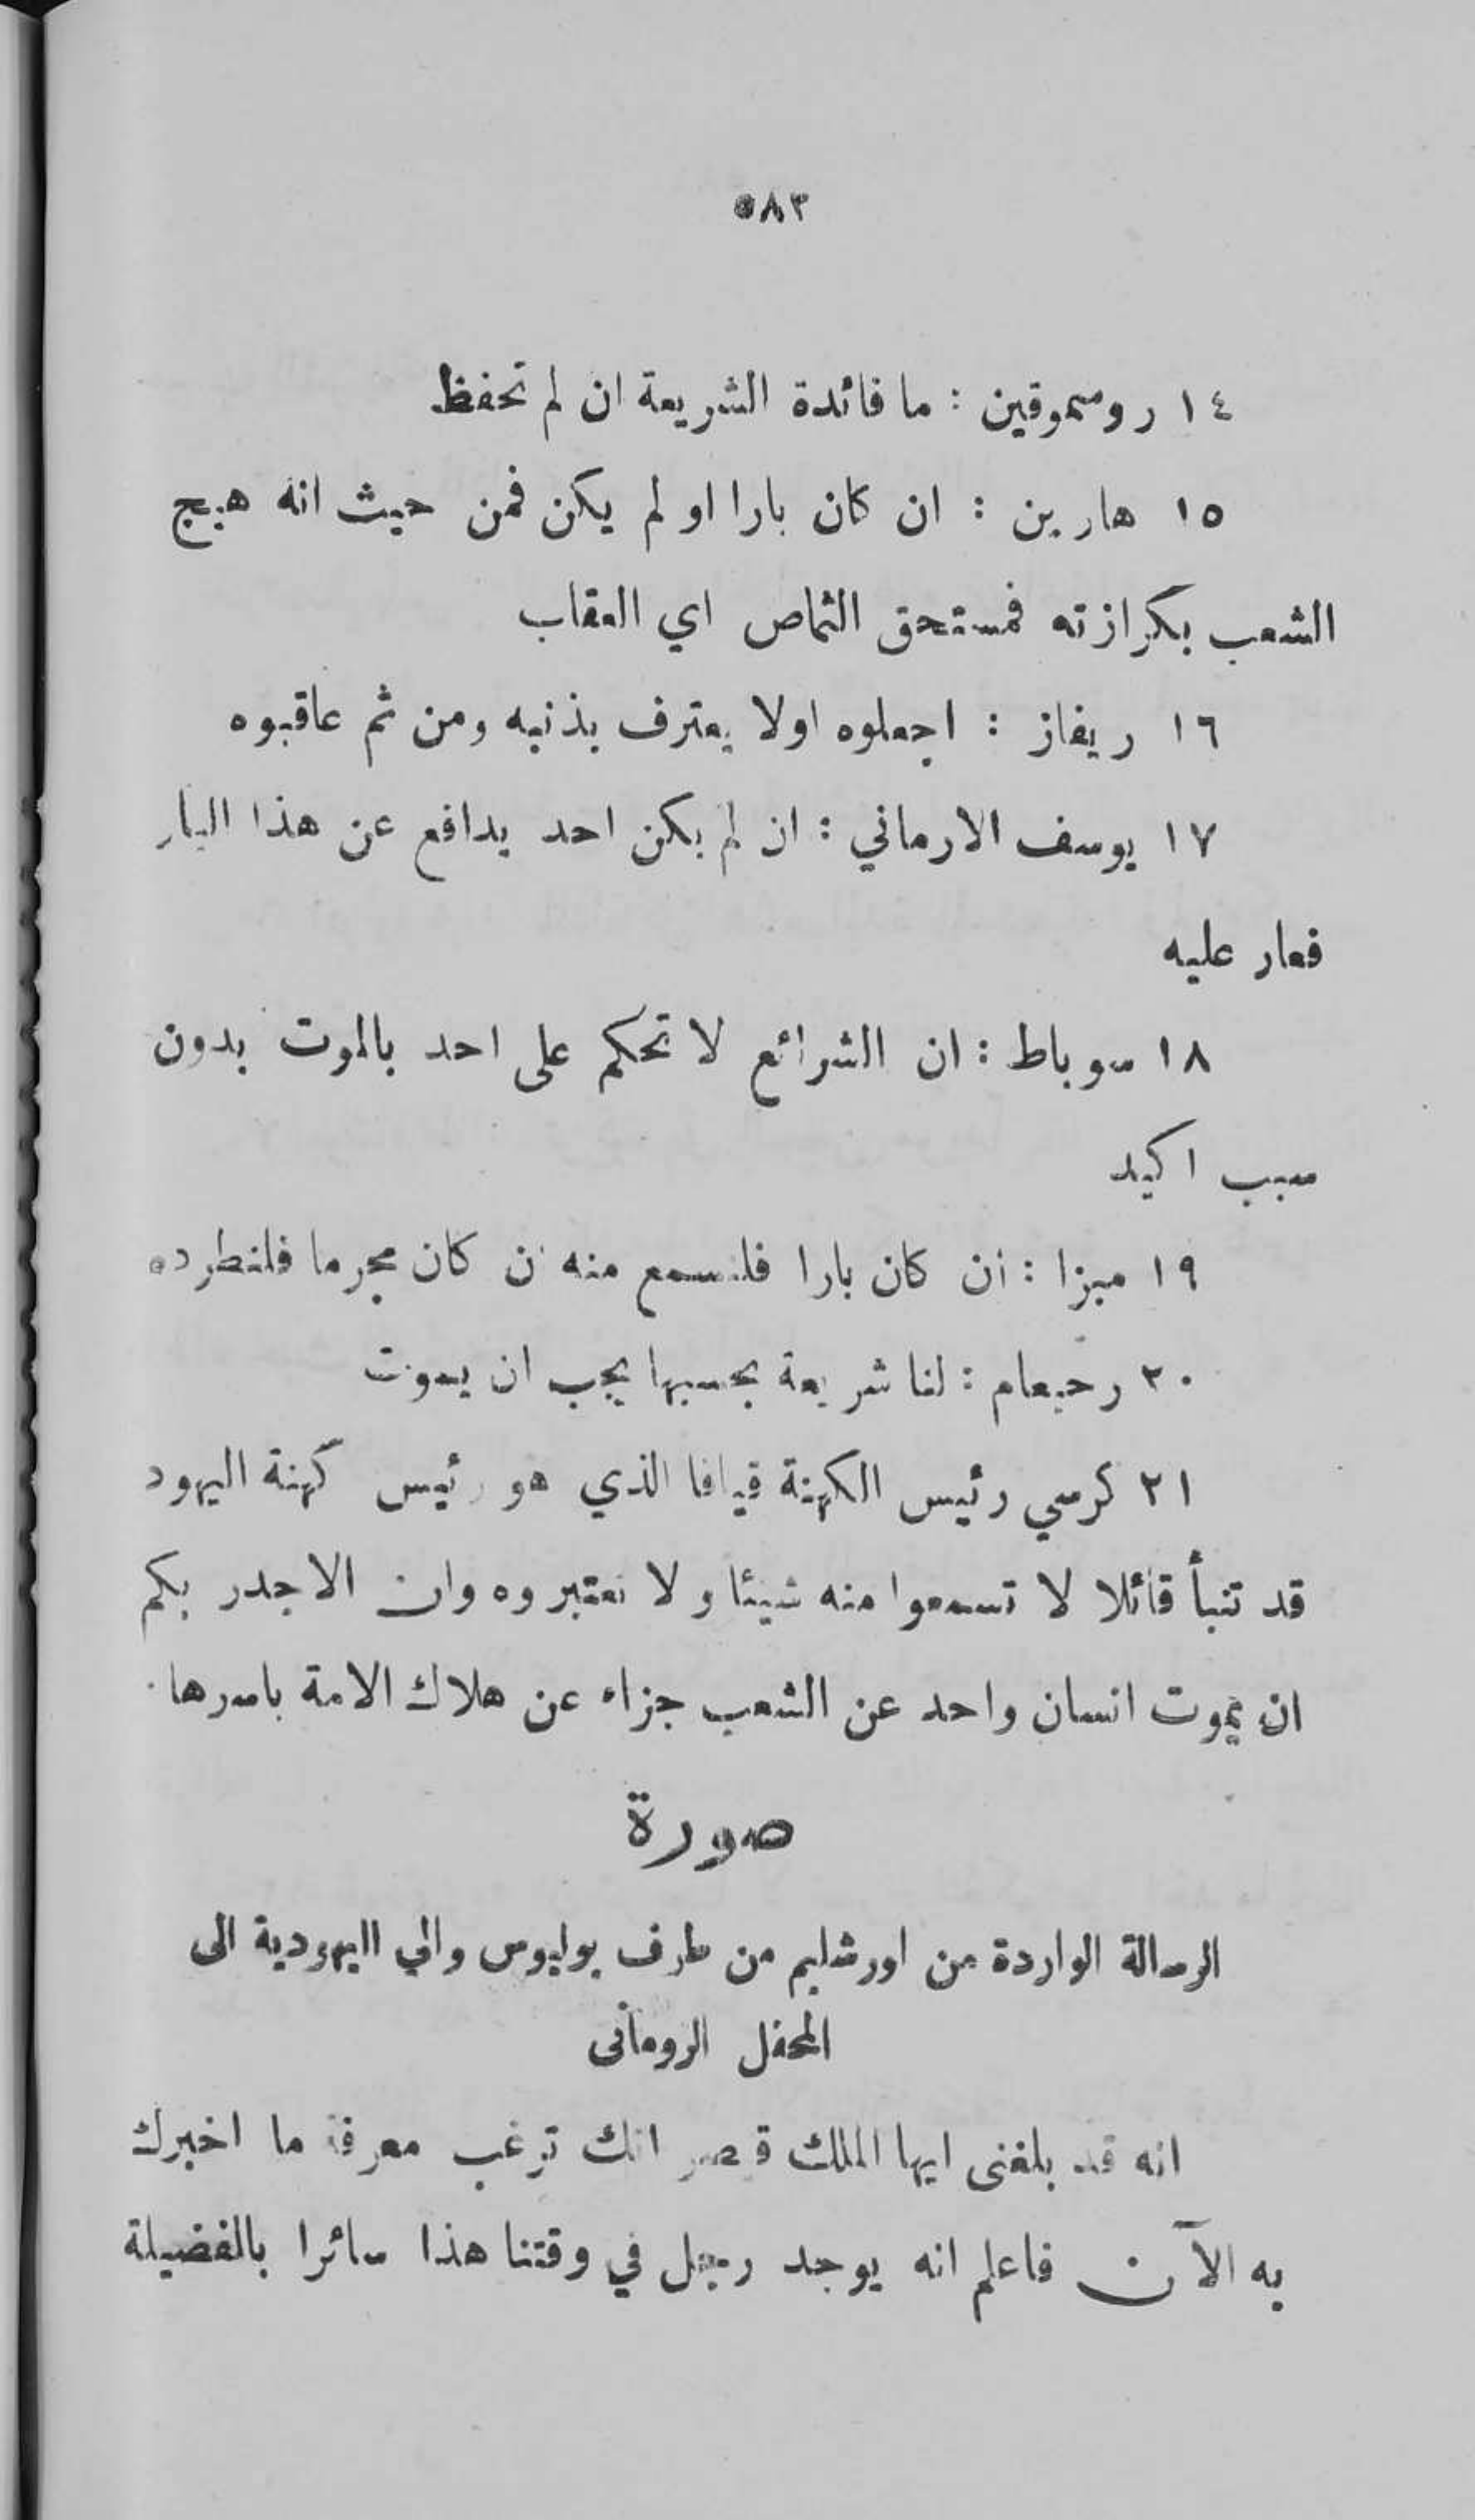 ٥٨٣
١٤ روسموقين : ما فائدة الشريعة ان لم تحفظ
١٥ هارين : ان كان بارا او لم يكن فمن حيث انه هيج
الشعب بكرازته فمستحق الثماص اي العقاب
١٦ ريفاز : اجعلوه اولا يعترف بذنبه ومن ثم عاقبوه
١٧ يوسف الارماني : ان لم يكن احد يدافع عن هذا البار
فعار عليه
١٨ سوباط : ان الشرائع لا تحكم على احد بالموت بدون
سبب اكيد
١٩ ميزا : ان كان بارا فلنسمع منه ان كان مجرما فلنطرده
٢٠ رحبعام : لنا شريعة بحسبها يجب ان يموت
٢١ كرسي رئيس الكهنة قيافا الذي هو رئيس كهنة اليهود
قد تنبأ قائلا لا تسمعوا منه شيئا ولا تعتبروه وان الاجدر بكم
ان يموت انسان واحد عن الشعب جزاء عن هلاك الامة باسرها
صورة
الرسالة الواردة من اورشليم من طرف بوليوس والي اليهودية الى
المحفل الرومانى
انه قد بلغنى ايها الملك قيصر انك ترغب معرفة ما اخبرك
به الآن فاعلم انه يوجد رجل في وقتنا هذا سائرا بالفضيلة